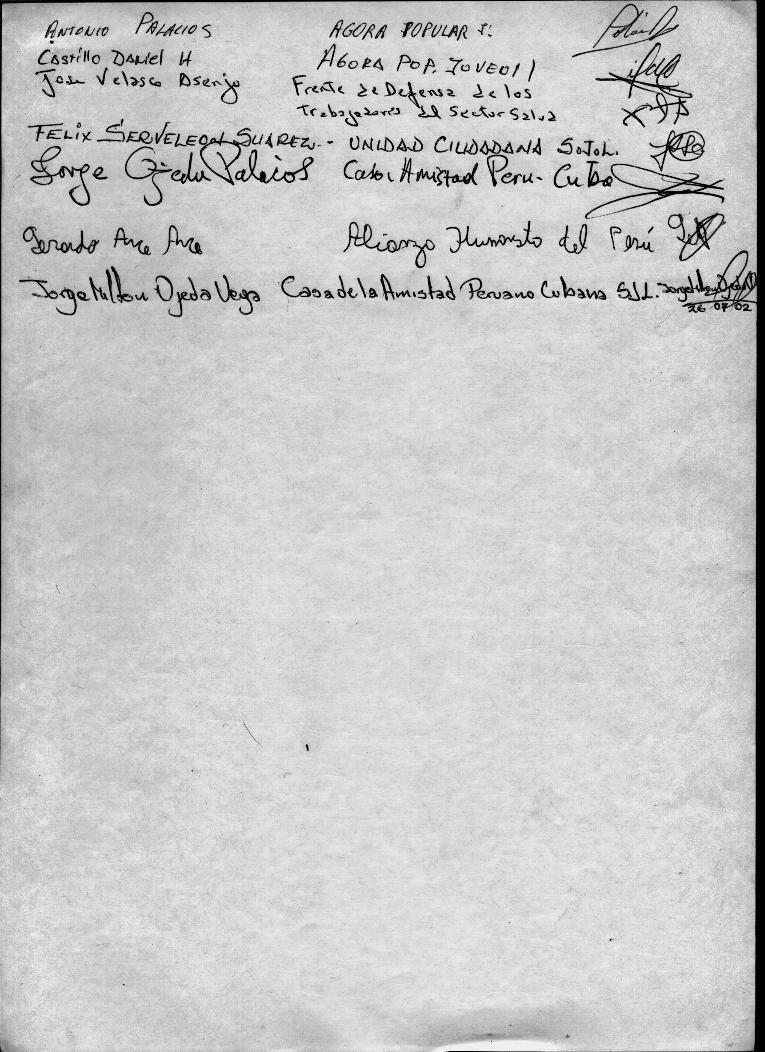 ANTONIO PALACIOS AGORA POPULAR
Castillo Daniel H AGORA POP. JOVEN
Jose Velasco Asenjo Frente de Defensa de los
Trabajadores del Sector Salud
FELIX SERVELEON SUAREZ.- UNIDAD CIUDADANA S.J.L.
Jorge Ojeda Palacios Casa Amistad Peru-Cuba
Gerardo Arce Arce Alianza Humanista del Perú
Jorge Milton Ojeda Vega Casa de la Amistad Peruano Cubana SJL.
26 07 02